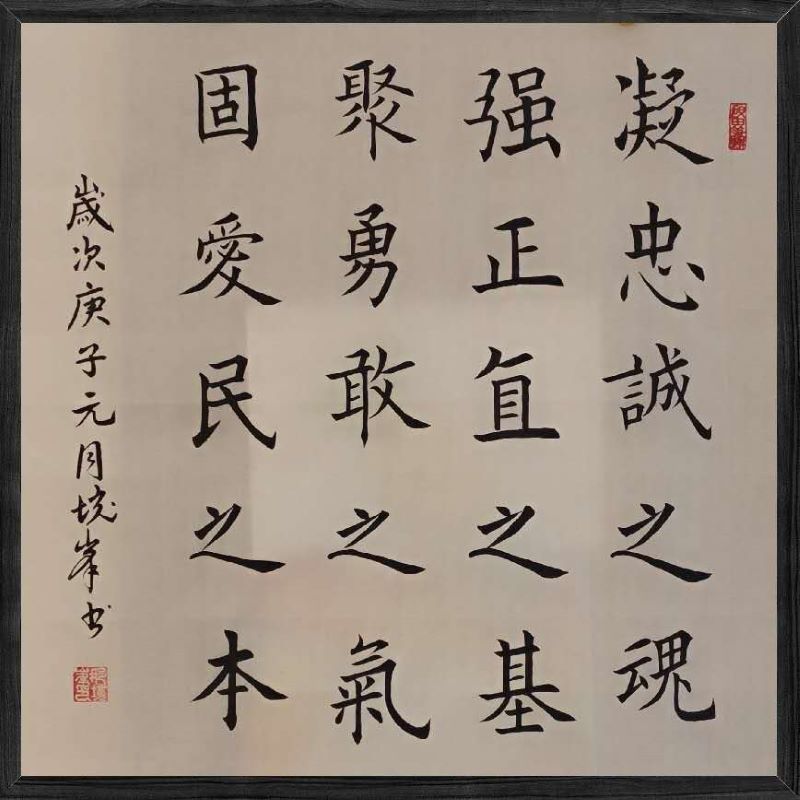 凝忠誠之魂
强正直之基
聚勇敢之氣
固愛民之本
歲次庚子元月 峯书